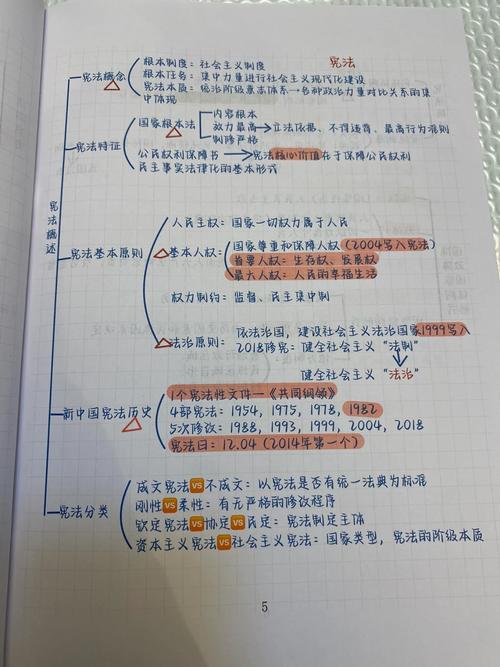 宪法
宪法概述
宪法概念
根本制度：社会主义制度
根本任务：集中力量进行社会主义现代化建设
宪法本质：统治阶级意志体系→各种政治力量对比关系的集
中体现
宪法特征
国家根本法
内容根本
效力最高→立法依据、不得违背、最高行为准则
制修严格
公民权利保障书→宪法核心价值在于保障公民权利
民主事实法律化的基本形式
宪法基本原则
人民主权：国家一切权力属于人民
基本人权：
国家尊重和保障人权（2004写入宪法）
首要人权：生存权、发展权
最大人权：人民的幸福生活
权力制约：监督、民主集中制
法治原则：
依法治国，建设社会主义法治国家1999写入
2018修宪：健全社会主义“法制”
↓
健全社会主义“法治”
新中国宪法历史
1个宪法性文件—《共同纲领》
4部宪法：1954，1975，1978，1982
5次修改：1988，1993，1999，2004，2018
宪法日：12.04（2014年第一个）
宪法分类
成文宪法VS不成文：以宪法是否有统一法典为标准
刚性VS柔性：有无严格的修改程序
钦定宪法VS协定VS民定：宪法制定主体
资本主义宪法VS社会主义宪法：国家类型，宪法的阶级本质
5